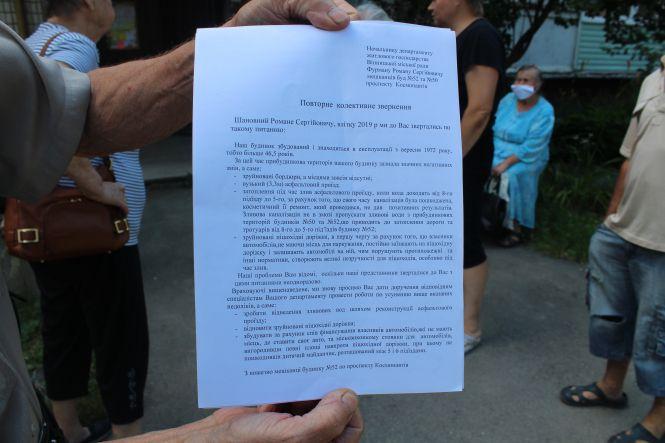 Начальнику департаменту
житлового господарства
Вінницької міської ради
Фурману Роману Сергійовичу
мешканців буд №52 та №50
проспекту Космонавтів
Повторне колективне звернення
Шановний Романе Сергійовичу, влітку 2019 р ми до Вас звертались по
такому питанню:
Наш будинок збудований і знаходиться в експлуатації з вересня 1972 року,
тобто більше 46,5 років.
За цей час прибудинкова територія нашого будинку зазнала значних негативних
змін, а саме:
- зруйновані бордюри, а місцями зовсім відсутні;
- вузький (3,3м) асфальтовий проїзд;
- затоплення під час злив асфальтового проїзду, коли вода доходить від 8-го
підїзду до 5-го, за рахунок того, що свого часу каналізація була пошкоджена,
косметичний її ремонт, який проводився, не дав позитивних результатів.
Зливова каналізація не в змозі пропускати зливові води з прибудинкових
територій будинків №50 та №52,що приводить до затоплення дороги та
тротуарів від 8-го до 5-го під'їздів будинку №52;
- зруйновані пішохідні доріжки, в першу чергу за рахунок того, що власники
автомобілів,не маючи місць для паркування, постійно заїзжають на пішохідну
доріжку і залишають автомобілі на ній, чим порушують протипожежні та
інші нормативи, створюють великі незручності для пішоходів, особливо під
час злив.
Наші проблеми Вам відомі, оскільки наші представники зверталися до Вас з
цими питаннями неодноразово.
Враховуючі вищенаведене, ми знову просимо Вас дати доручення відповідним
спеціалістам Вашого департаменту провести роботи по усуненню вище вказаних
недоліків, а саме:
- зробити відведення зливових вод шляхом реконструкції асфальтового
проїзду;
- відновити зруйновані пішохідні доріжки;
- збудувати за рахунок спів фінансування власників автомобілів,які не мають
місць, де ставити свої авто, та місьвиконкому стоянки для автомобілів,
вигородивши певні площі навпроти пішохідної доріжки, при цьому не
пошкодивши дитячий майданчик, розташований між 5 і 6 підїздами.
З повагою мешканці будинку №52 по проспекту Космонавтів